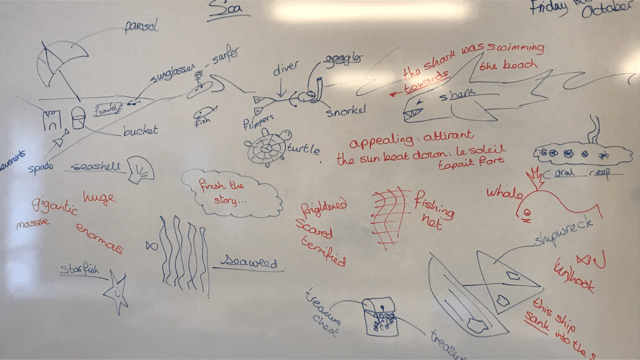 Sea
Friday
October
parasol
sunglasses
surfer
diver
goggles
the shark was swimming
towards
the beach
shark
fish
flippers
snorkel
bucket
spade
seashell
turtle
appealing : attirant
the sun beat down : le soleil
tapait fort
coral reef
whale
huge
gigantic
massive
enormous
finish the
story...
frightened
scared
terrified
fishing
net
shipwreck
starfish
seaweed
hook
this ship
sank into the s
treasure
chest
treasure